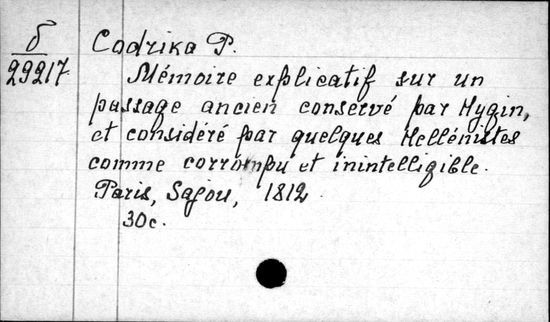 δ
29217
Codrika P.
Mémoire explicatif sur un
passage ancien conservé par Hygin,
et considéré par quelques Hellénistes
comme corrompu et inintelligible.
Paris, Sajou, 1812
30c.